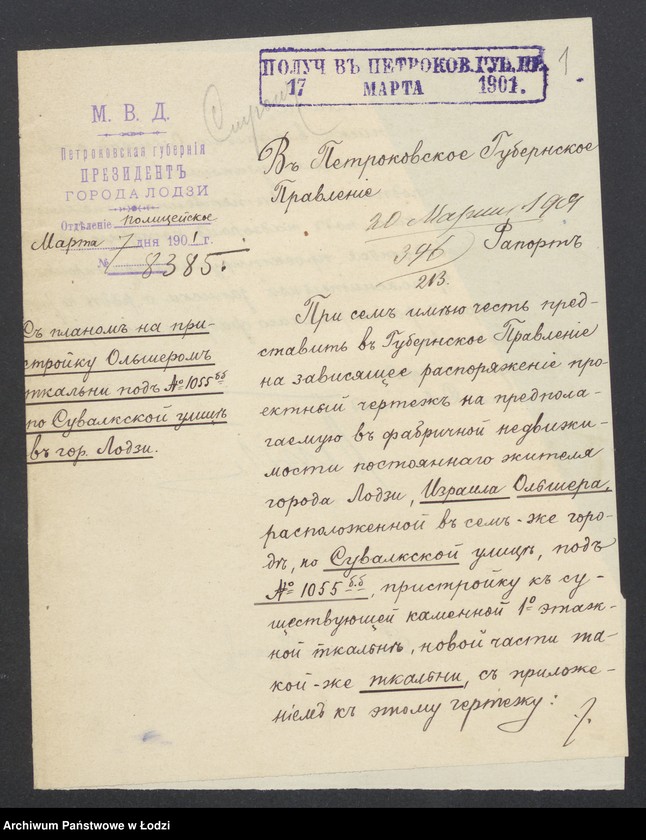 ПОЛУЧ ВЪ ПЕТРОКОВ. ГУБ. ПР.
17 МАРТА 1901.
1
М. В. Д.
Петроковская губернія
ПРЕЗИДЕНТЪ
ГОРОДА ЛОДЗИ
Отдѣленіе полицейское
Марта 7 дня 1901 г.
№ 8385.
Съ планомъ на при-
стройку Ольшеромъ
ткальни подъ № 1055 бб
по Сувалкской улицѣ
въ гор. Лодзи.
Въ Петроковское Губернское
Правленіе
20 Марта 1901
346
213.
Рапортъ
При семъ имѣю честь пред-
ставить въ Губернское Правленіе
на зависящее распоряженіе про-
ектный чертежъ на предпола-
гаемую въ фабричной недвижи-
мости постояннаго жителя
города Лодзи, Израила Ольшера,
расположенной въ семъ-же горо-
дѣ, по Сувалкской улицѣ, подъ
№ 1055 б.б, пристройку къ су-
ществующей каменной 1о этаж-
ной ткальнѣ, новой части та-
кой-же ткальни, съ приложе-
ніемъ къ этому чертежу:
Archiwum Państwowe w Łodzi